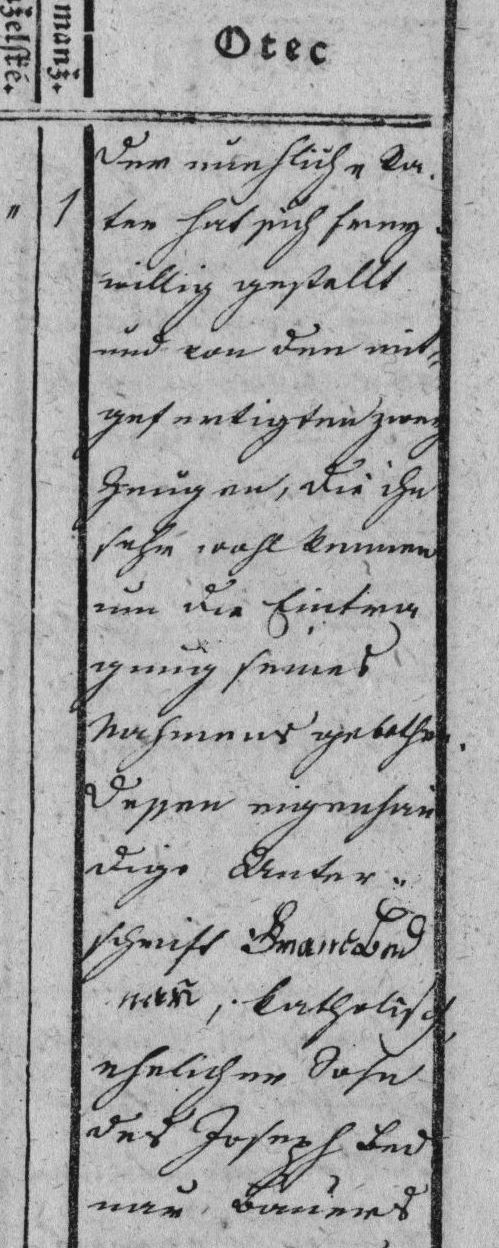 zelſté.
manž.
Otec
" 1
Der unehliche Va-
ter hat sich frey-
willig gestellt
und von den mit-
gefertigten zwey
Zeugen, die ihn
sehr wohl kennen
um die Eintra
gung seines
Nahmens gebethen.
Dessen eigenhän
dige Unter-
schrift Franc Bed
nař, katholisch,
ehelicher Sohn
des Joseph Bed
nar Bauers